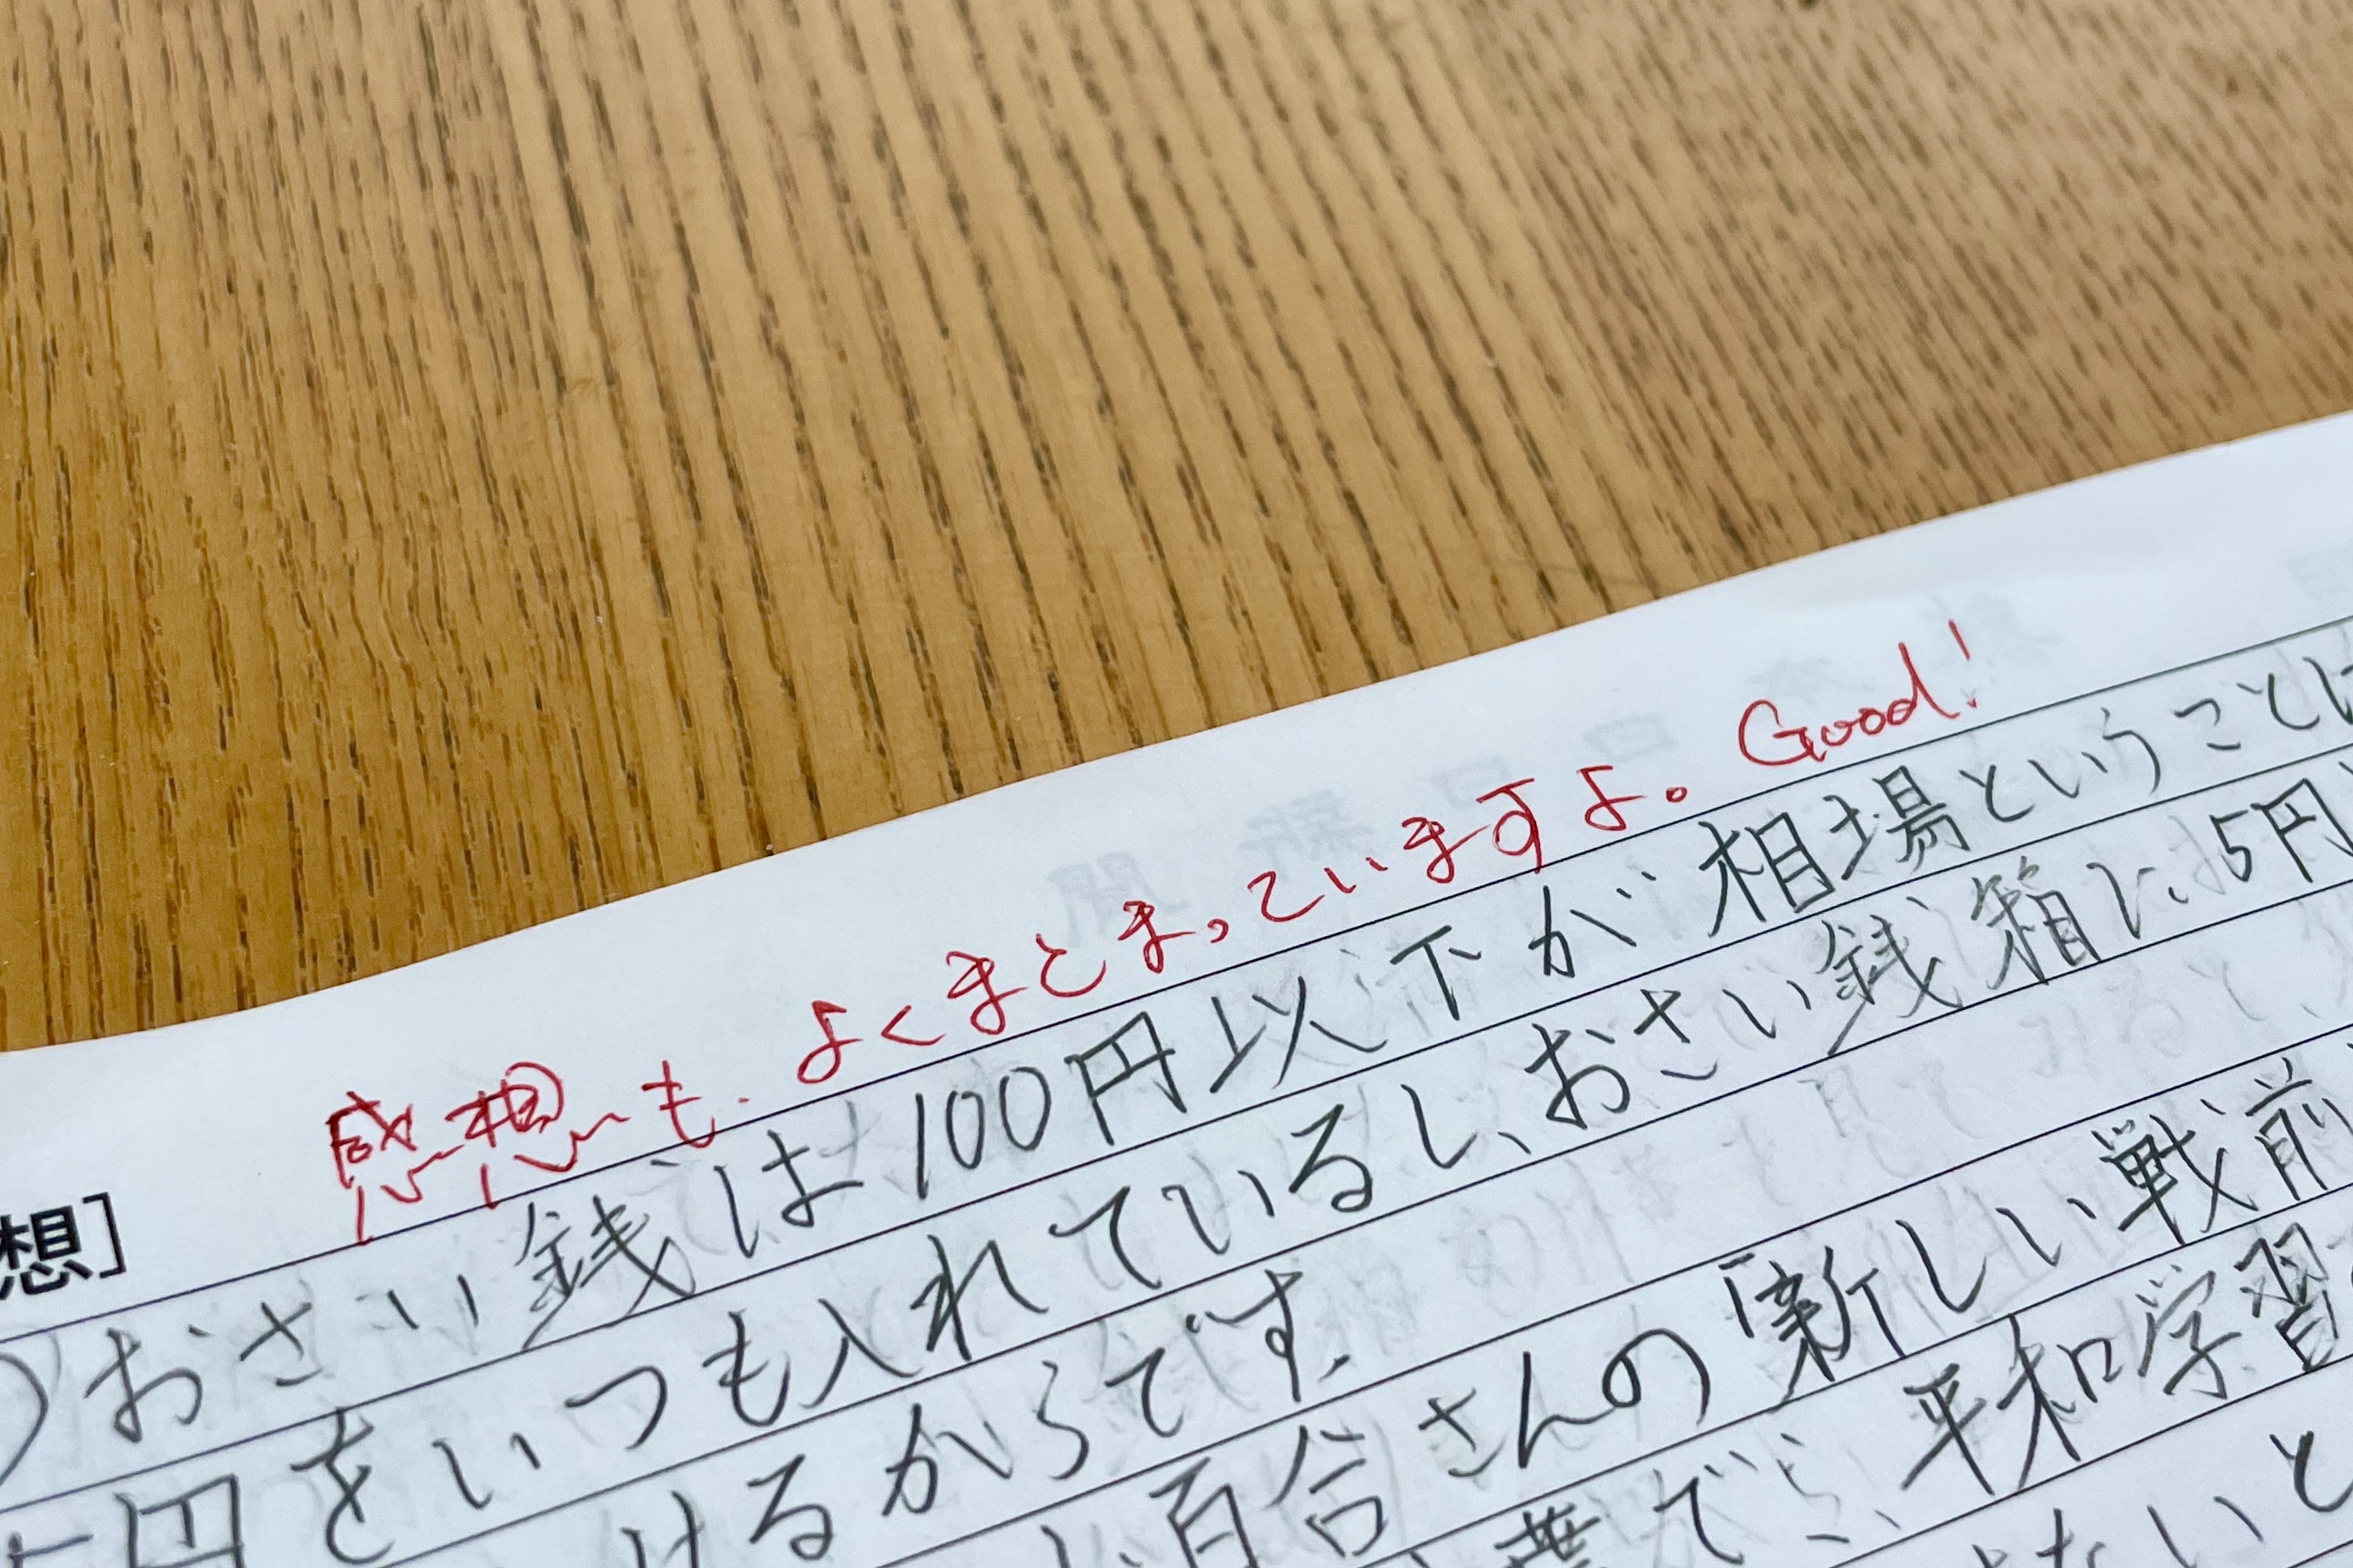 感想も、よくまとまっていますよ。Good!
想]
)おさい銭は100円以下が相場ということは
円をいつも入れているし、おさい銭箱に、5円
けるからです。
百合さんの「新しい戦前
で、平和学習
ないと